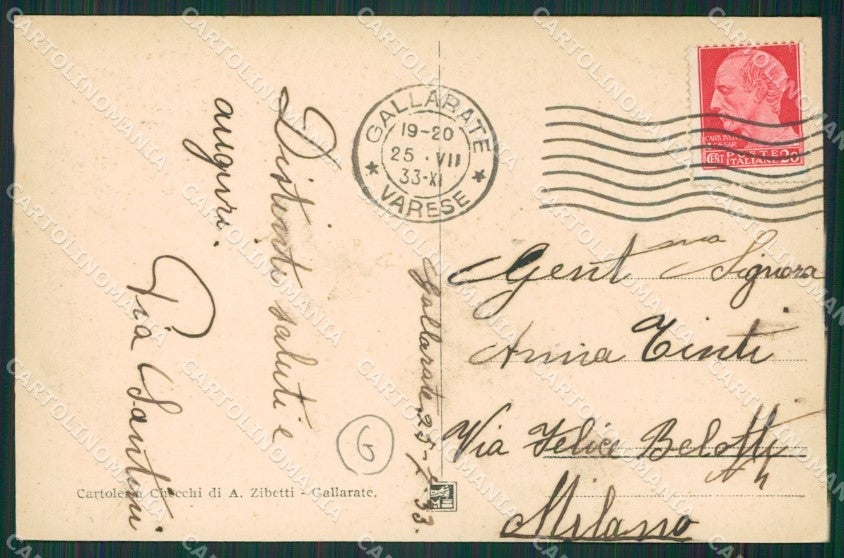 Distinti saluti e
auguri.
Pia Santini
Gallarate 25-7-33.
GALLARATE
19-20
25 · VII
33-XI
* VARESE *
CENT ITALIANE 20
Gent ma Signora
Anna Tinti
Via Felice Belotti
Milano
6
Cartoleria Checchi di A. Zibetti - Gallarate.
CARTOLINOMANIA